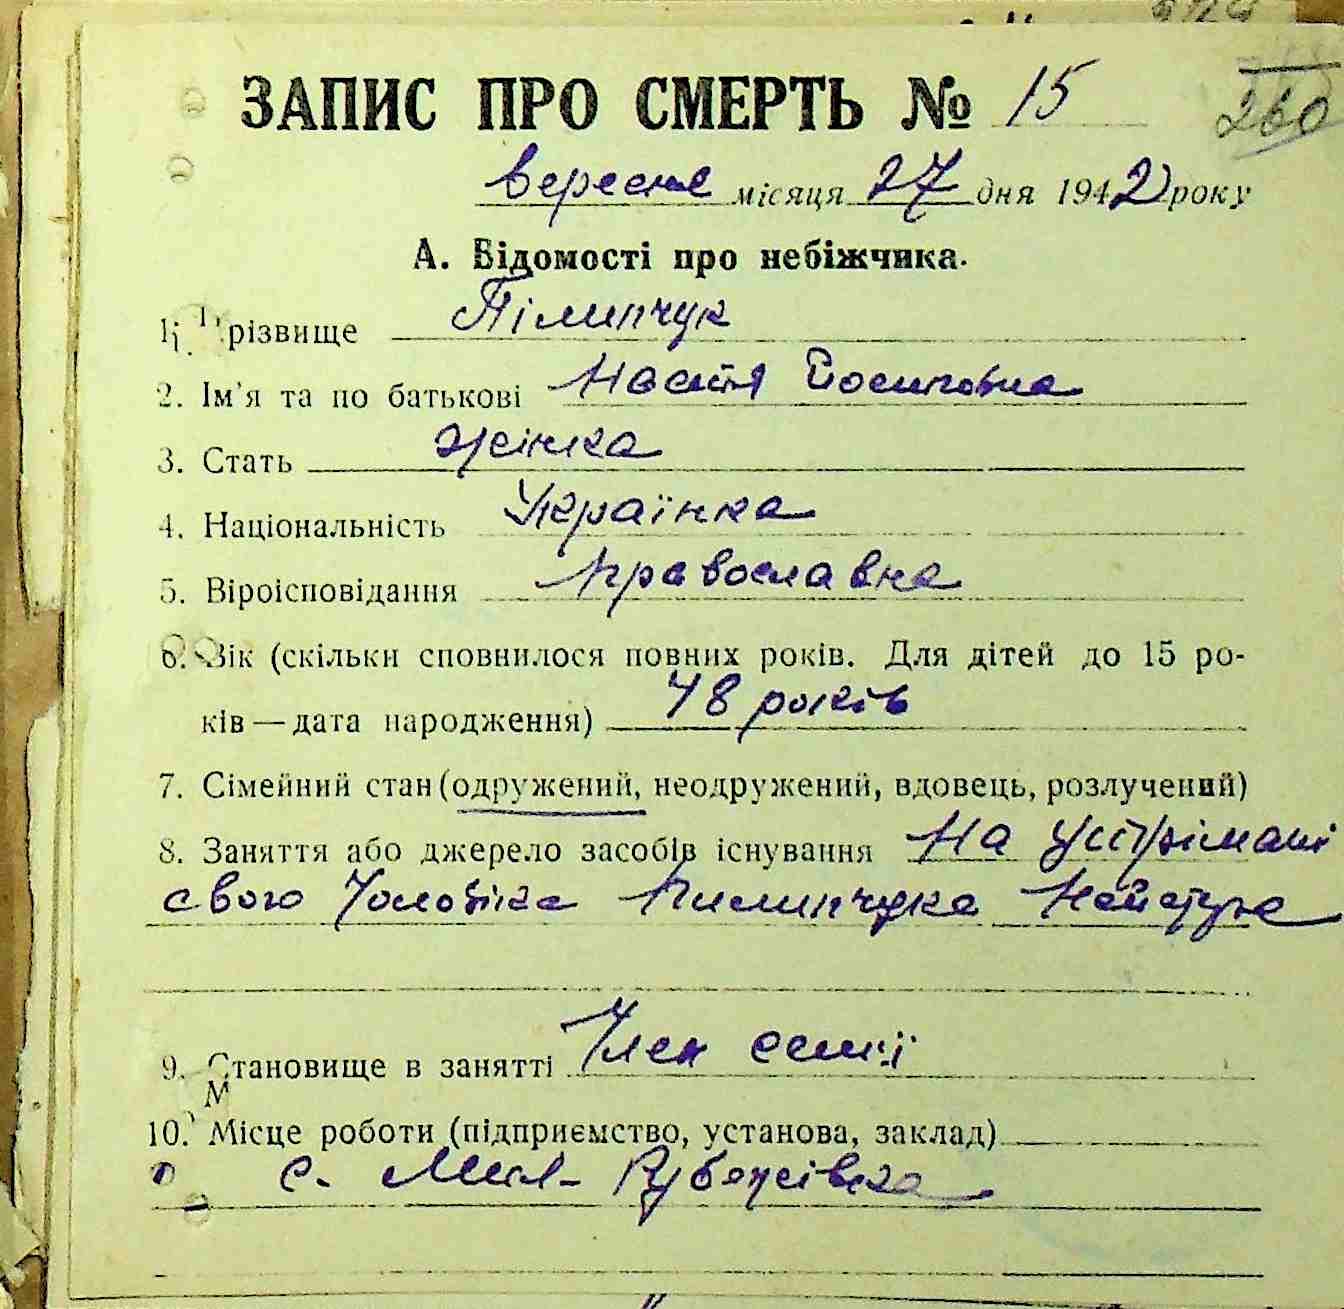 260
ЗАПИС ПРО СМЕРТЬ № 15
вересня місяця 27 дня 1942 року
А. Відомості про небіжчика.
1. Прізвище Пілипчук
2. Ім'я та по батькові Настя Йосиповна
3. Стать жінка
4. Національність Українка
5. Віроісповідання православна
6. Вік (скільки сповнилося повних років. Для дітей до 15 ро-
ків — дата народження) 48 років
7. Сімейний стан (одружений, неодружений, вдовець, розлучений)
8. Заняття або джерело засобів існування На устрімані
свого Чоловіка Пилипчука
9. Становище в занятті Член семї
10. Місце роботи (підприємство, установа, заклад)
с. Мил- Рубежівка